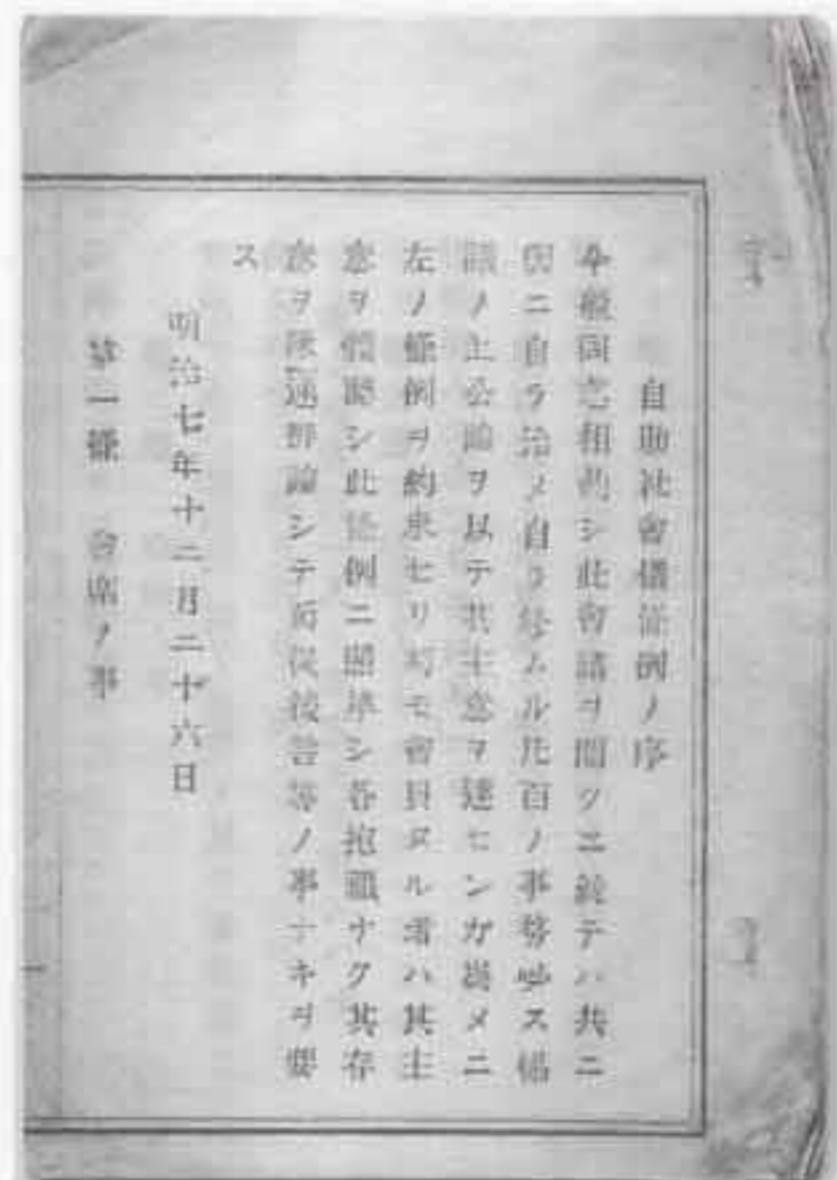 自助社會議條例ノ序
今般同志相約シ此會議ヲ開クニ就テハ共ニ
倶ニ自ラ治メ自ラ修ムル凡百ノ事務必ス協
議ノ上公論ヲ以テ其主意ヲ達センカ爲メニ
左ノ條例ヲ約束セリ苟モ會員タル者ハ其主
意ヲ體認シ此條例ニ照準シ各抱職ナク其存
意ヲ陳述辨論シテ面從後言等ノ事ナキヲ要
ス
明治七年十二月二十六日
第一條 會席ノ事